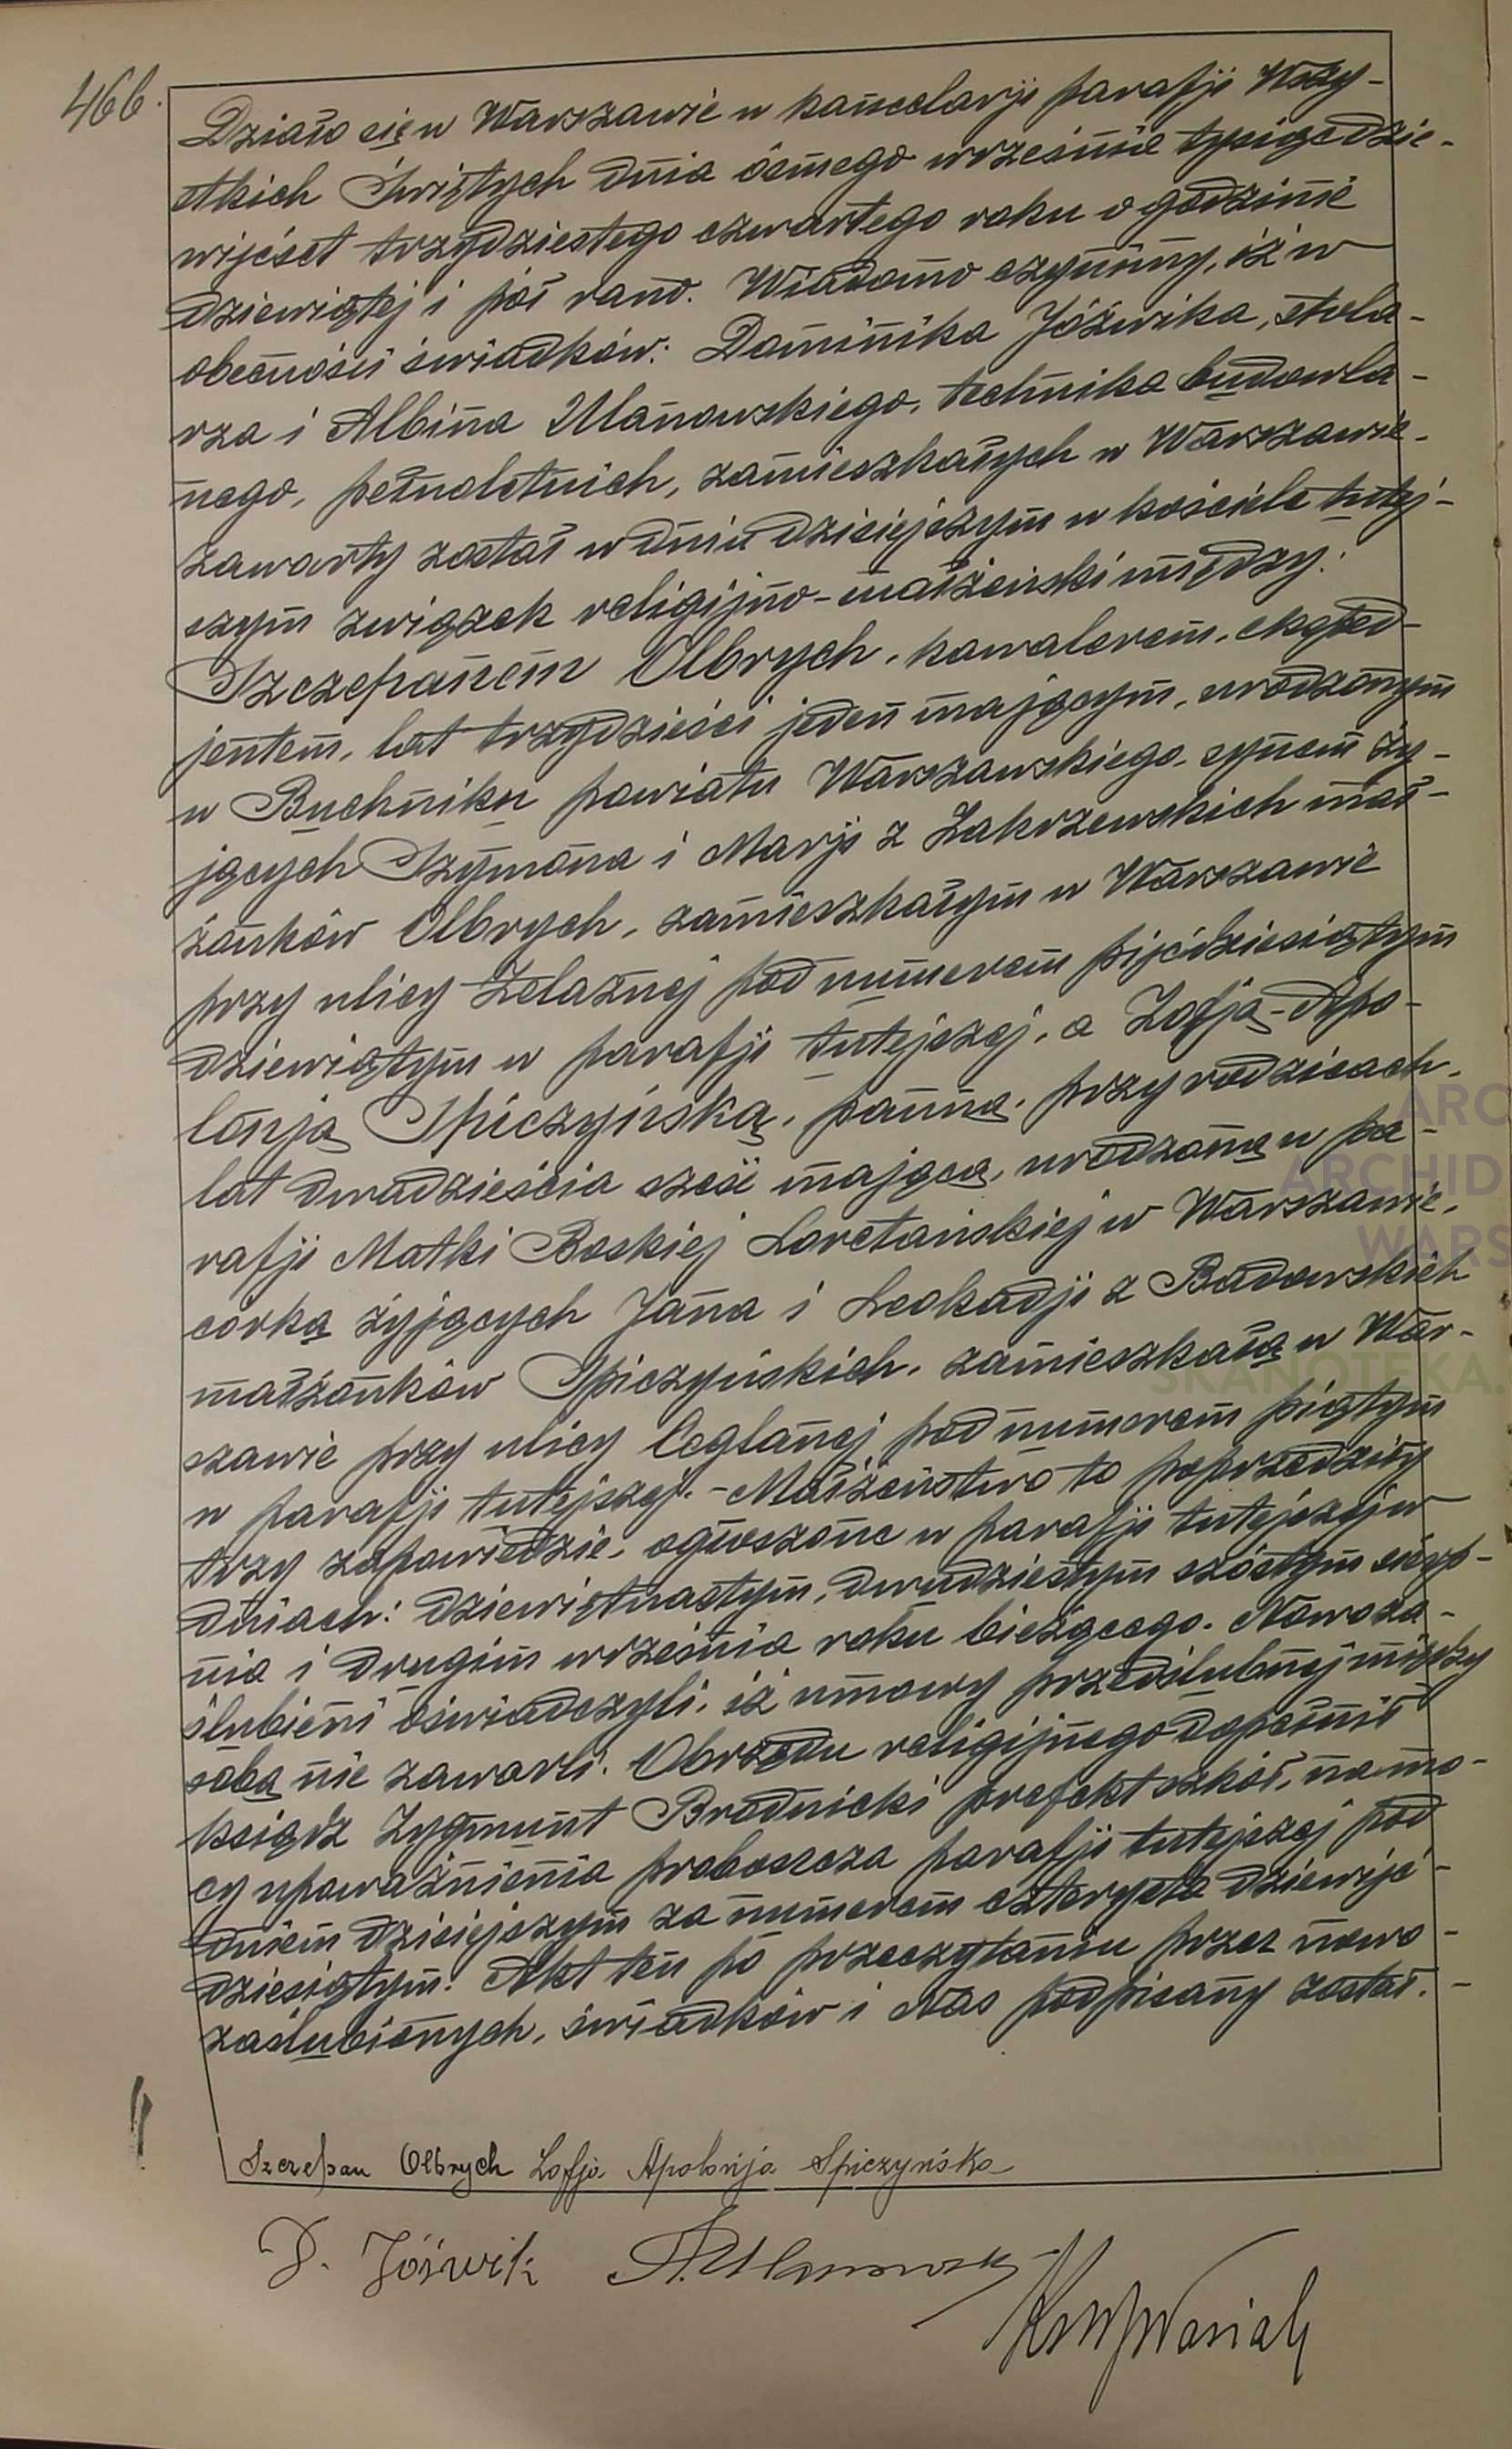 466.
Działo się w Warszawie w kancelarji parafji Wszy-
stkich Świętych dnia ósmego września tysiąc dzie-
więćset trzydziestego czwartego roku o godzinie
dziewiątej i pół rano. Wiadomo czynimy, iż w
obecności świadków: Dominika Jóźwika, stola-
rza i Albina Ulanowskiego, technika budowla-
nego, pełnoletnich, zamieszkałych w Warszawie,
zawarty został w dniu dzisiejszym w kościele tutej-
szym związek religijno-małżeński między:
Szczepanem Olbrych, kawalerem, eksped-
jentem, lat trzydzieści jeden mającym, urodzonym
w Buchniku powiatu Warszawskiego, synem ży-
jących Szymona i Marji z Zakrzewskich mał-
żonków Olbrych, zamieszkałym w Warszawie
przy ulicy Żelaznej pod numerem pięćdziesiątym
dziewiątym w parafji tutejszej, a Zofją-Apo-
lonją Spiczyńską, panną, przy rodzicach,
lat dwadzieścia sześć mającą, urodzoną w pa-
rafji Matki Boskiej Loretańskiej w Warszawie,
córką żyjących Jana i Leokadji z Badowskich
małżonków Spiczyńskich, zamieszkałą w War-
szawie przy ulicy Ceglanej pod numerem piątym
w parafji tutejszej. - Małżeństwo to poprzedziły
trzy zapowiedzie, ogłoszone w parafji tutejszej w
dniach: dziewiętnastym, dwudziestym szóstym sierp-
nia i drugim września roku bieżącego. Nowoza-
ślubieni oświadczyli, iż umowy przedślubnej między
sobą nie zawarli. Obrzędu religijnego dopełnił
ksiądz Zygmunt Brodnicki prefekt szkół, na mo-
cy upoważnienia proboszcza parafji tutejszej pod
dniem dzisiejszym za numerem czterysta dziewięć-
dziesiątym. Akt ten po przeczytaniu przez nowo-
zaślubionych, świadków i Nas podpisany został. -
Szczepan Olbrych Zofja Apolonija Spiczyńska
D. Jóźwik A. Ulanowski
ARC
ARCHID
WARS
SKANOTEKA.